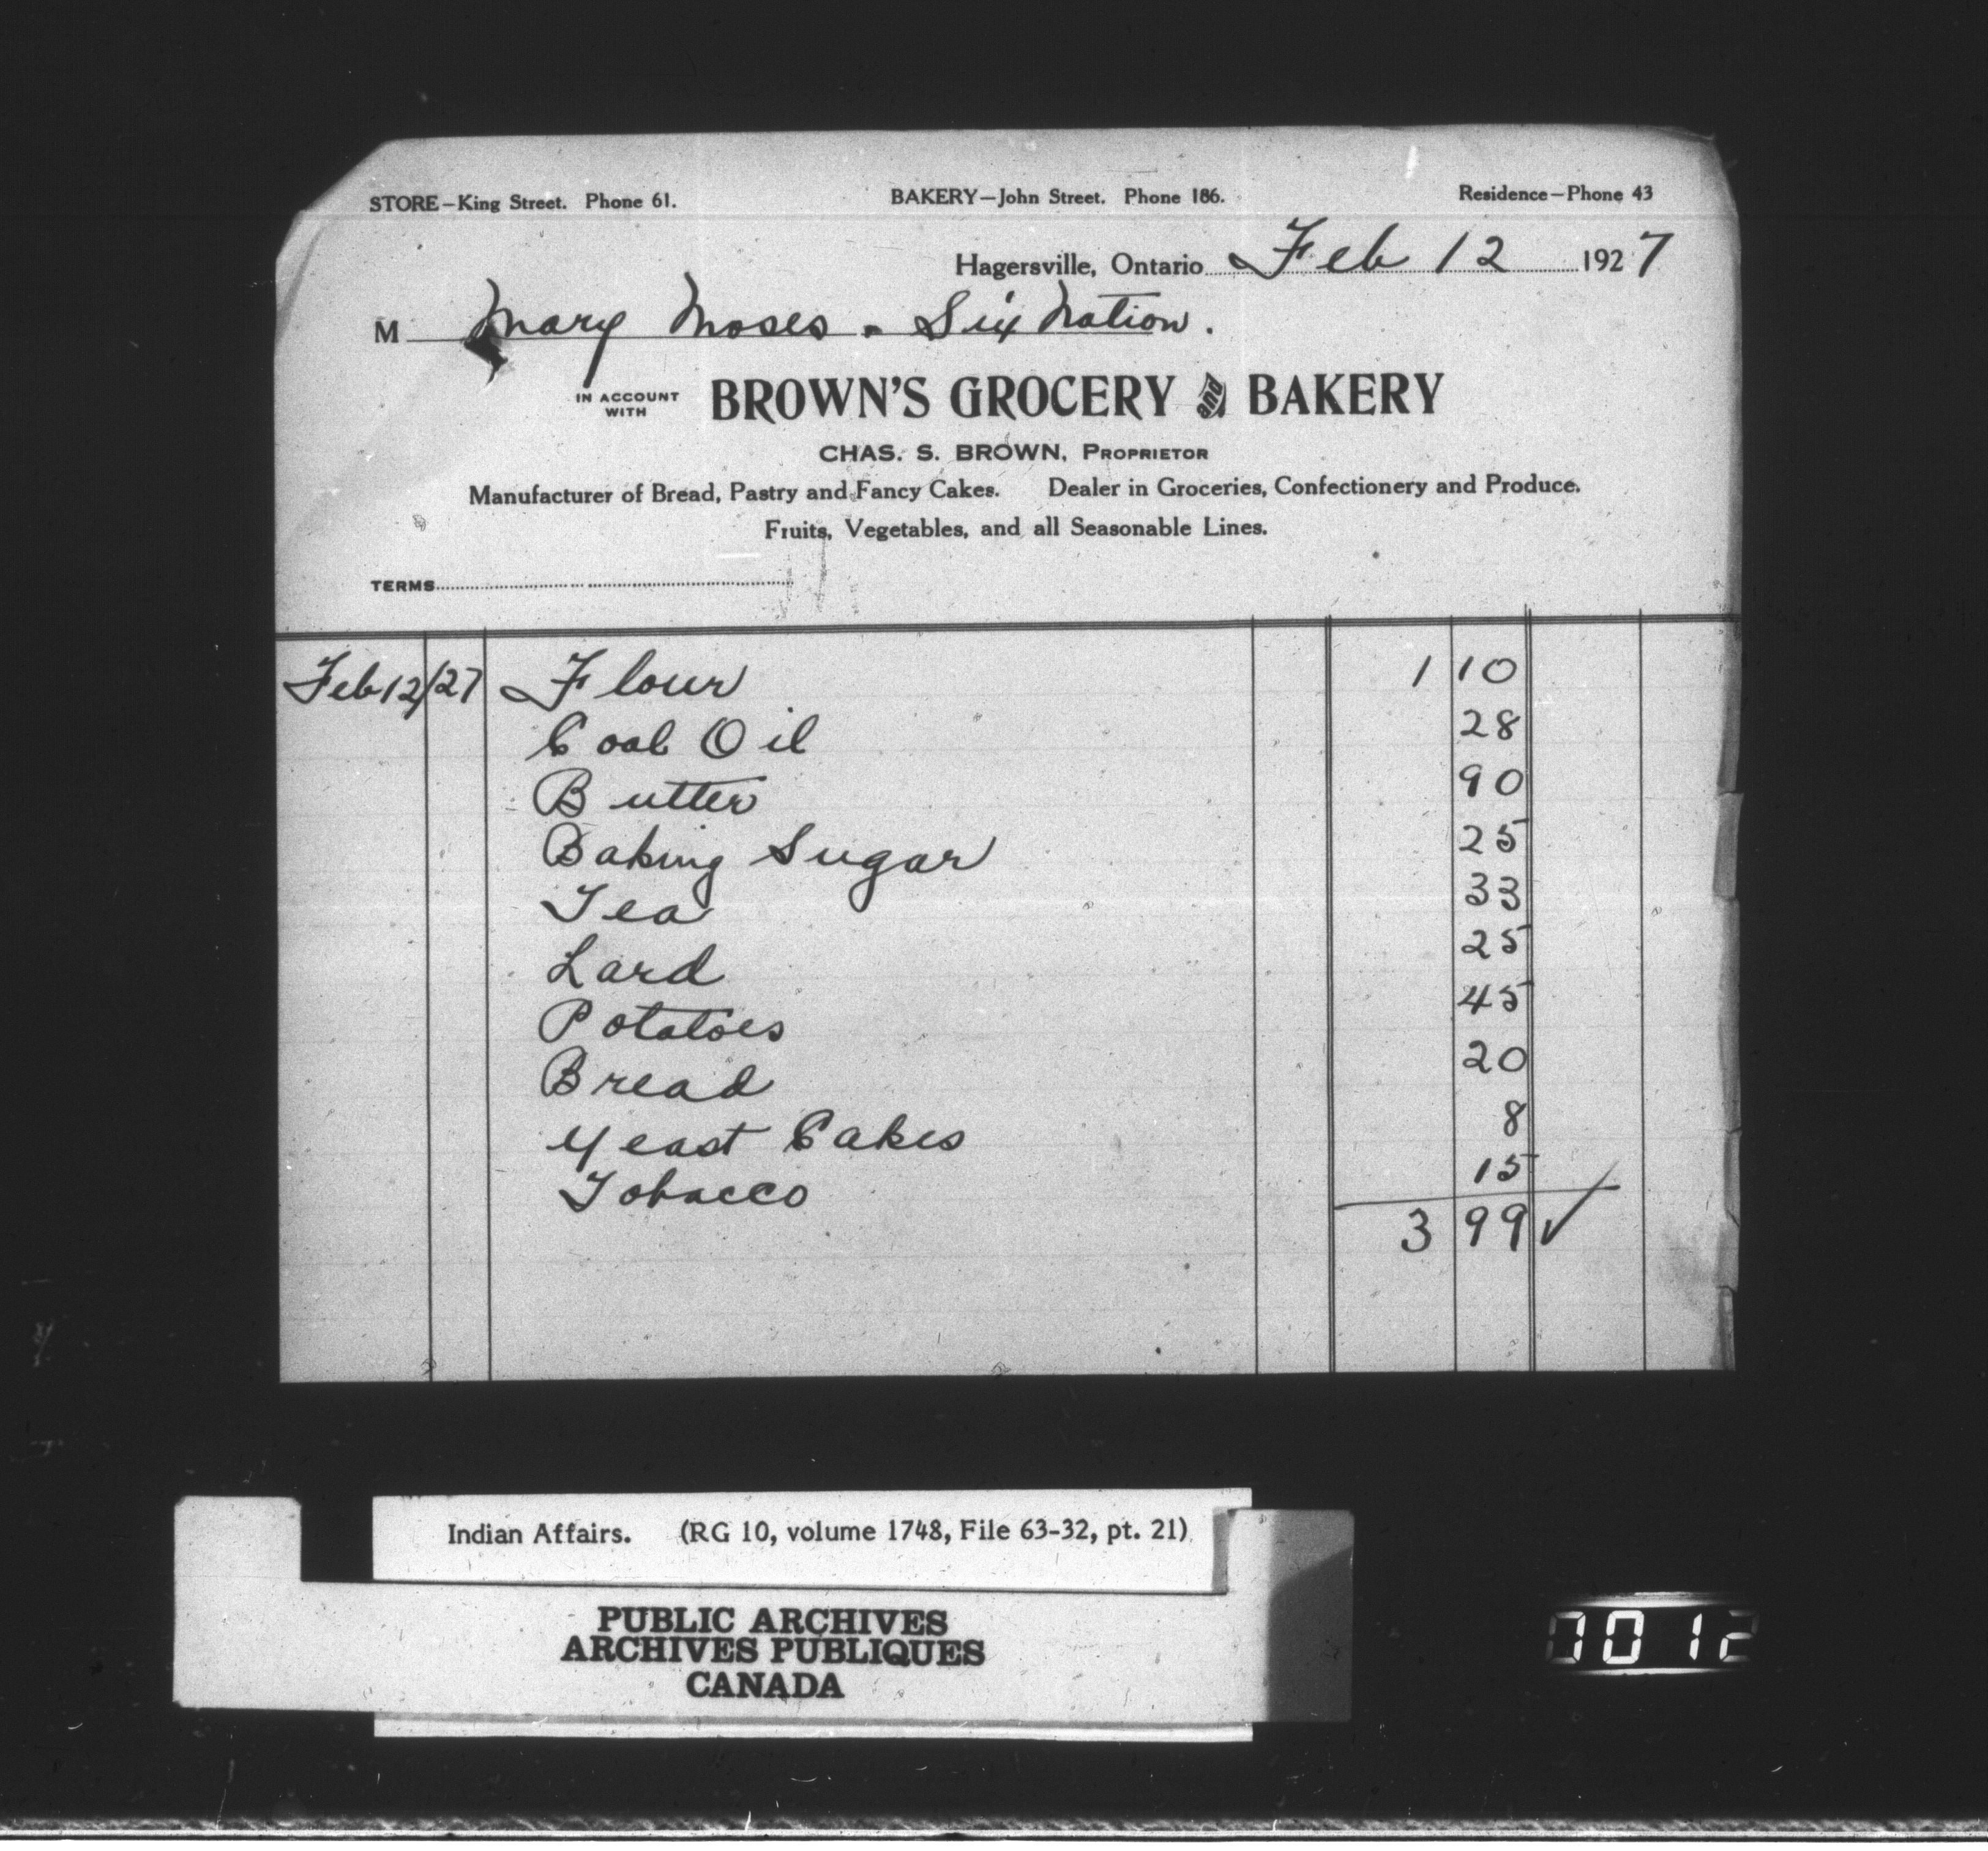 STORE—King Street. Phone 61. BAKERY—John Street. Phone 186. Residence—Phone 43
Hagersville, Ontario Feb 12 1927
M Mary Moses - Six Nation.
IN ACCOUNT WITH BROWN'S GROCERY and BAKERY
CHAS. S. BROWN, PROPRIETOR
Manufacturer of Bread, Pastry and Fancy Cakes. Dealer in Groceries, Confectionery and Produce.
Fruits, Vegetables, and all Seasonable Lines.
TERMS
Feb 12/27 Flour 1 10
Coal Oil 28
Butter 90
Baking Sugar 25
Tea 33
Lard 25
Potatoes 45
Bread 20
Yeast Cakes 8
Tobacco 15
3 99 ✓
Indian Affairs. (RG 10, volume 1748, File 63-32, pt. 21)
PUBLIC ARCHIVES
ARCHIVES PUBLIQUES
CANADA
7012